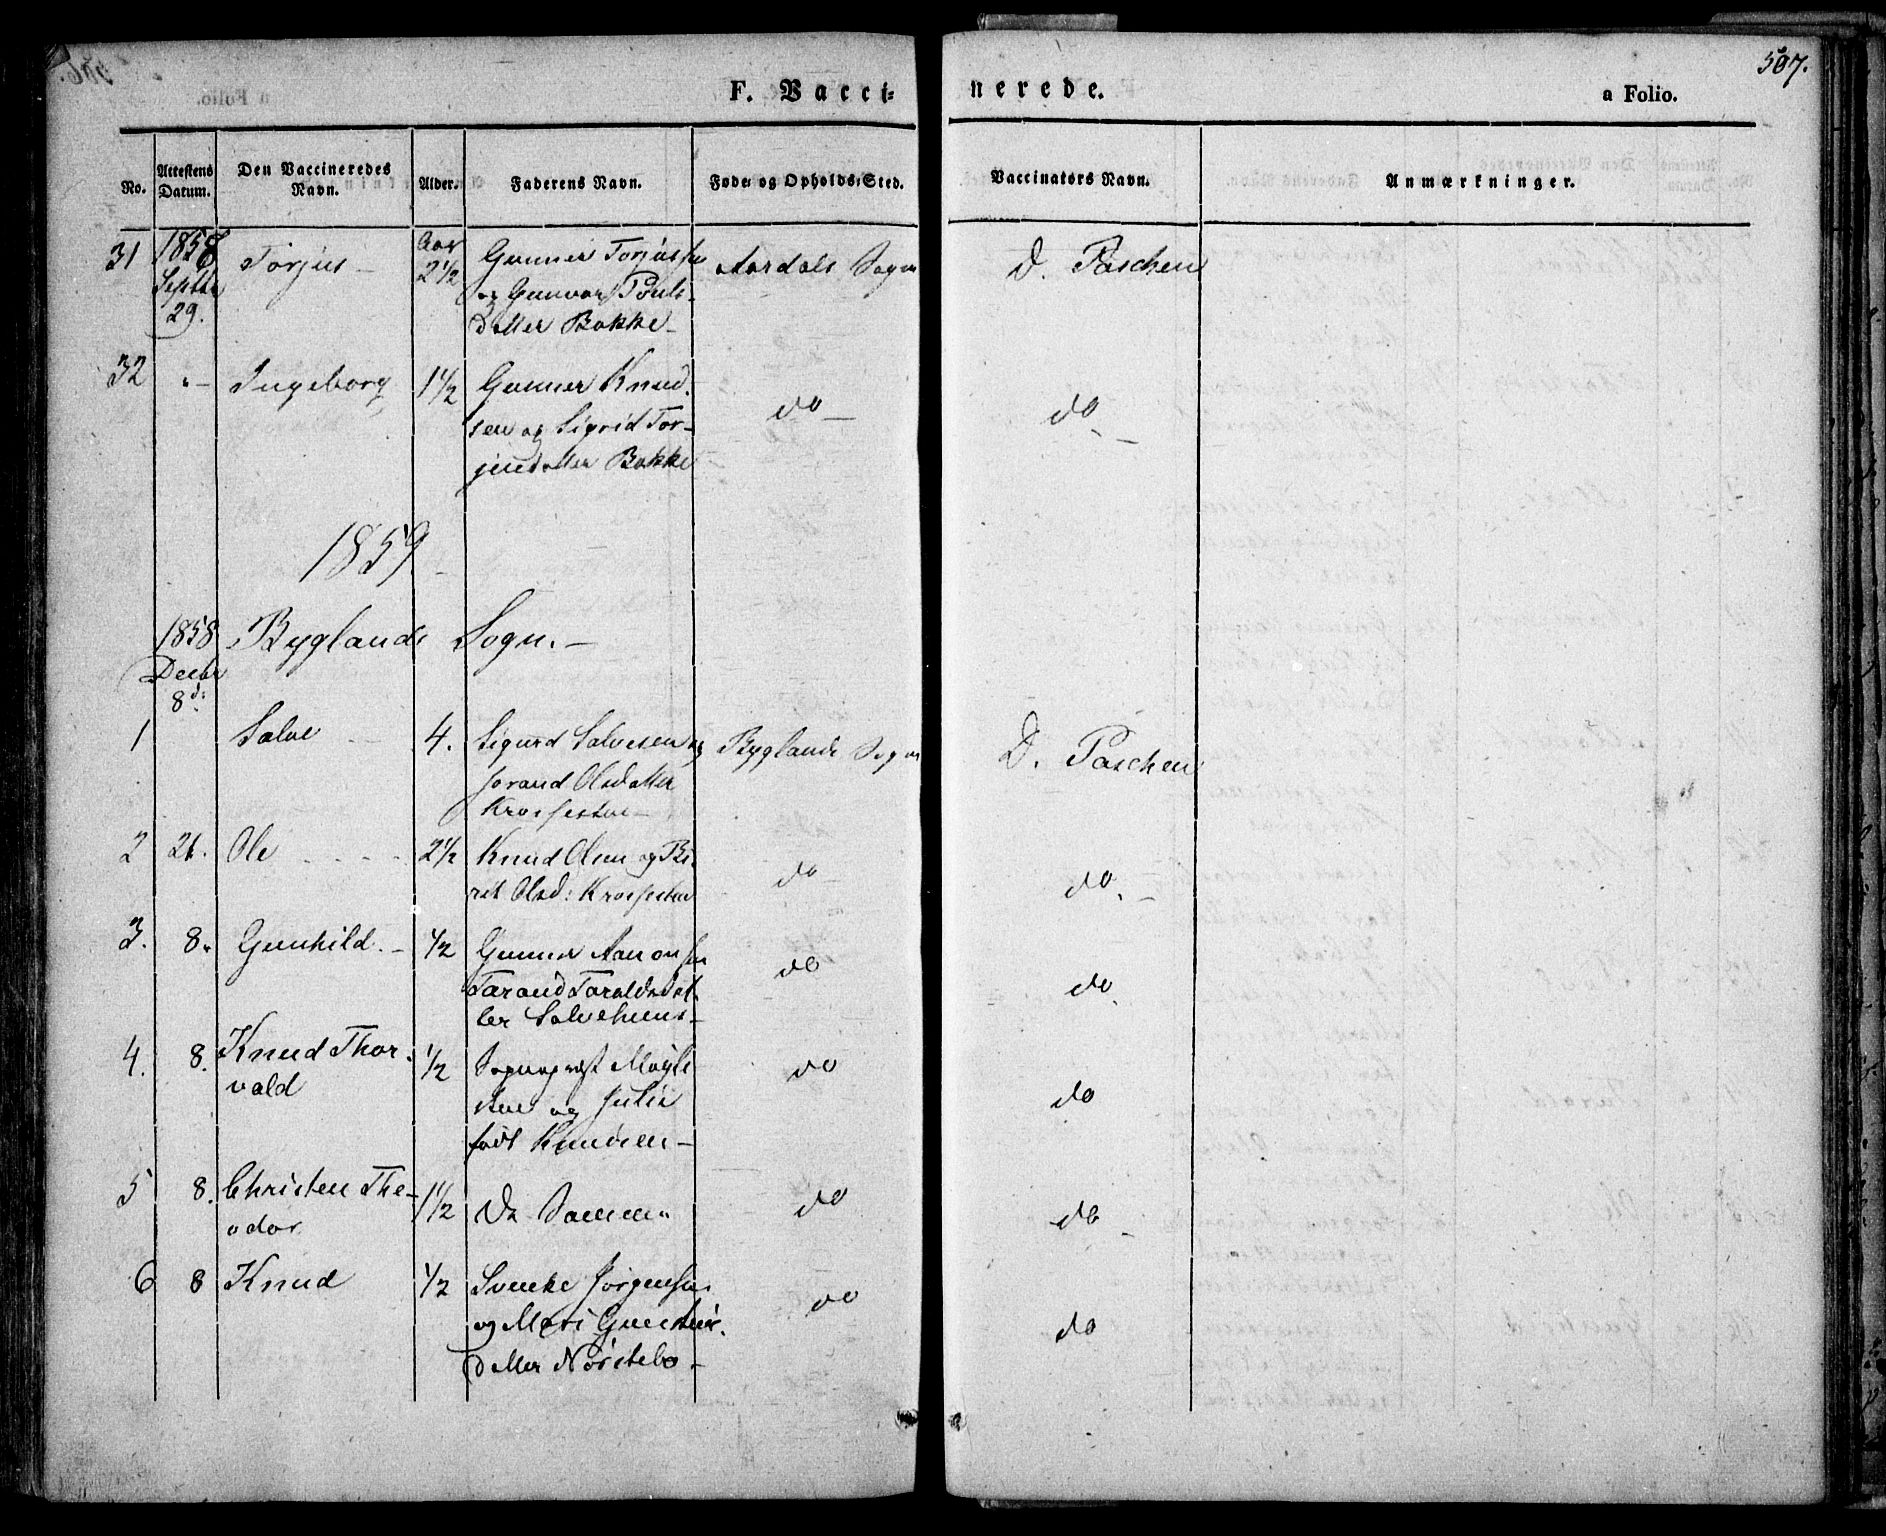 507.
F. Vacci-
nerede.
a Folio.
No.
Attestens Datum.
Den Vaccineredes Navn.
Alder.
Faderens Navn.
Føde- og Opholds-Sted.
Vaccinators Navn.
Anmærkninger.
31 1858 Torjus — Aar Gunner Torjussen Aardals Sogn D. Paschen
Septbr 2½ og Gunvor Pouls-
29. datter Bakke —
32 "— Ingeborg 1½ Gunner Knud- do — do —
sen og Sigrid Tor-
jusdatter Bakke
1859
1858 Byglands Sogn. —
Decbr
8d:
1 Salve — 4. Sigurd Salvesen og Byglands Sogn D. Paschen
Jorand Olsdatter
2 21. Ole 2½ Knud Olsen og Bi- do — do. —
ret Olsd:
3. 8. Gunhild. — ½ Gunner Aanonsen do do
Tarand Taraldsdat-
ter
4. 8. Knud Thor- ½ do do
vald og Julie
født Knudsen —
5 8. Christen The- 1½ Do Samme do do —
odor
6 8 Knud ½ Svenke Jørgensen do do
og Mari
datter Nørstebø —